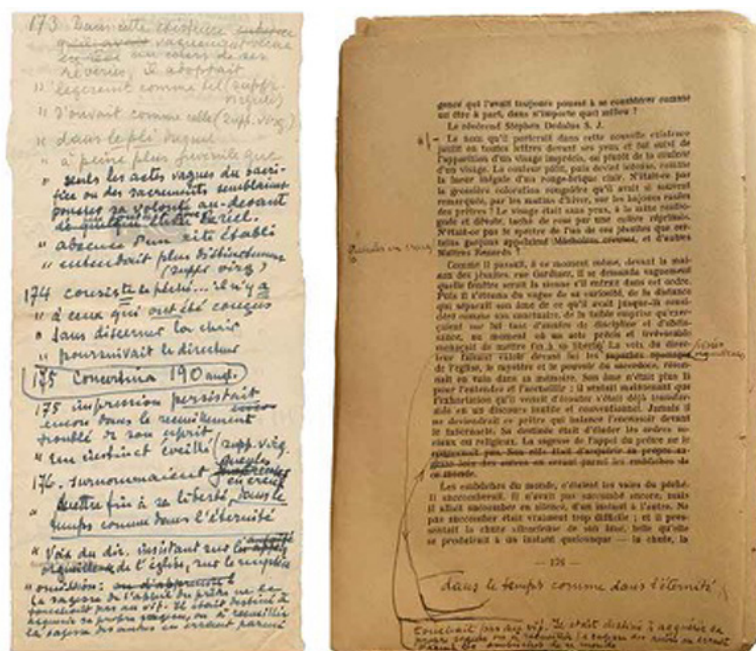 173 Dans cette existence
vaguement vécue
au cours de ses
rêveries, il adoptait
" légèrement comme tel (supp.
virgules)
" s'ouvrait comme celle (supp. virg.)
" dans le pli vague
" à peine plus juvénile que
" seuls les actes vagues du sacri-
fice ou des sacrements semblaient
pousser sa volonté au-devant
de quelque réel.
" absence d'un rite établi
" entendait plus distinctement
(supp virg)
174 consiste ce péché... il n'y a
" à ceux qui ont été conçus
" sans discerner la chair
" poursuivait le directeur
175 Concertina 190 angl.
175 impression persistait
encore dans le recueillement
troublé de son esprit
" Un instinct éveillé (supp. virg.
176. surnommaient gueules
en creux
" mettre fin à sa liberté, dans le
temps comme dans l'éternité
" Voix du dir. insistant sur les
orgueilleux de l'église, sur le mystère
" omission: ou d'apprendre
La sagesse de l'appel du prêtre ne le
touchait pas au vif. Il était destiné à
acquérir sa propre sagesse, ou à recueillir
la sagesse des autres en errant parmi
gence qui l'avait toujours poussé à se considérer comme
un être à part, dans n'importe quel milieu ?
Le révérend Stephen Dedalus S. J.
Le nom qu'il porterait dans cette nouvelle existence
jaillit en toutes lettres devant ses yeux et fut suivi de
l'apparition d'un visage imprécis, ou plutôt de la couleur
d'un visage. La couleur pâlit, puis devint intense, comme
la lueur inégale d'un rouge-brique clair. N'était-ce pas
la première coloration rougeâtre qu'il avait si souvent
remarquée, par les matins d'hiver, sur les bajoues rasées
des prêtres ? Le visage était sans yeux, à la mine
et dévote, tachée de rose par une colère réprimée.
N'était-ce pas le spectre de l'un de ces jésuites que cer-
tains garçons appelaient Mâchoires creuses, et d'autres
Maîtres Renards ?
Gueules en creux
Comme il passait, à ce moment même, devant la mai-
son des jésuites, rue Gardiner, il se demanda vaguement
quelle fenêtre serait la sienne s'il entrait dans cet ordre.
Puis il s'étonna du vague de sa curiosité, de la distance
qui séparait son âme de ce qu'il avait jusque-là consi-
déré comme son sanctuaire, de la faible emprise qu'exer-
çaient sur lui tant d'années de discipline et d'obéis-
sance, au moment où un acte précis et irrévocable
menaçait de mettre fin à sa liberté. La voix du direc-
teur faisant valoir devant lui les
orgueilleux
de l'église, le mystère et le pouvoir du sacerdoce, réson-
nait en vain dans sa mémoire. Son âme n'était plus là
pour l'entendre et l'accueillir ; il sentait maintenant que
l'exhortation qu'il venait d'écouter s'était déjà transfor-
mée en un discours inutile et conventionnel. Jamais il
ne deviendrait ce prêtre qui balance l'encensoir devant
le tabernacle. Sa destinée était d'éluder les ordres so-
ciaux ou religieux. La sagesse de l'appel du prêtre ne le
Son rôle était d'acquérir sa propre
en errant parmi les embûches de
ce monde.
Les embûches du monde, c'étaient les voies du péché.
Il succomberait. Il n'avait pas succombé encore, mais
il allait succomber en silence, d'un instant à l'autre. Ne
pas succomber était vraiment trop difficile ; et il pres-
sentait la chute silencieuse de son âme, telle qu'elle
se produirait à un instant quelconque — la chute, la
— 176 —
dans le temps comme dans l'éternité
touchait pas au vif. Il était destiné à acquérir sa
propre sagesse ou à recueillir la sagesse des autres en errant
parmi les embûches de ce monde